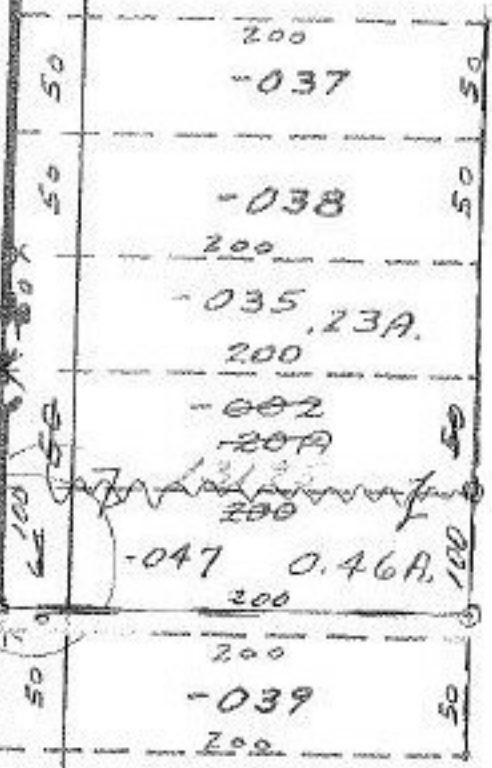 200
50 -037 50
50 -038 50
200
-035 .23A.
200
-002
.20A
50 50
200
100 -047 0.46A. 100
200
200
50 -039 50
200